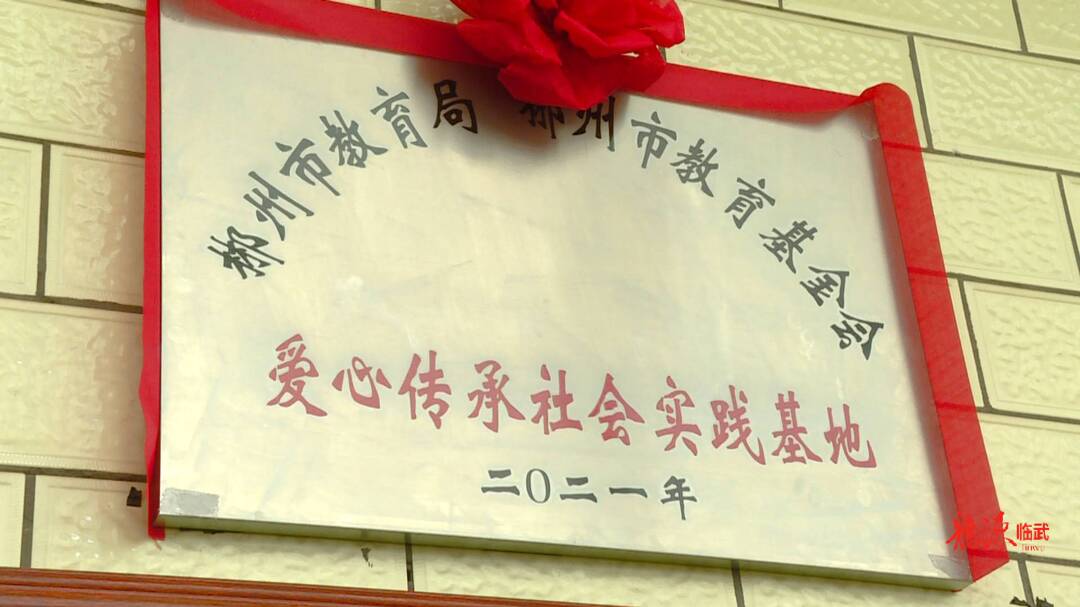 郴州市教育局 郴州市教育基金会
爱心传承社会实践基地
二〇二一年
临武